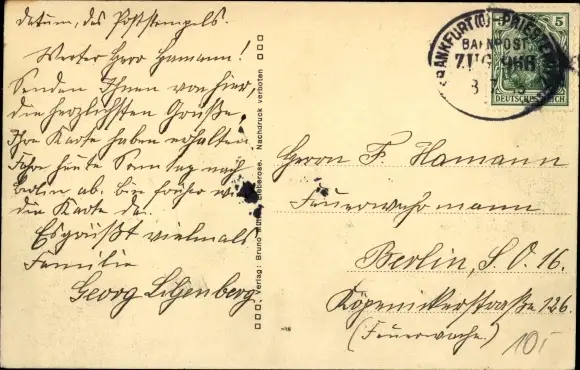 datum, des Poststempels.
Werter Herr Hamann!
Senden Ihnen von hier,
die herzlichsten Grüße,
Ihre Karte haben erhalten
Fahre heute Sonntag nach
Berlin ab. bin früher wie
die Karte da.
Es grüßt vielmals
Familie
Georg Liljenberg
Verlag: Bruno Lieberose. Nachdruck verboten
FRANKFURT (O)
BAHNPOST
ZUG 966
5
DEUTSCHES REICH
Herrn F. Hamann
Feuerwehrmann
Berlin, S. O. 16.
Köpenickerstraße 126.
(Feuerwache.)
10,-